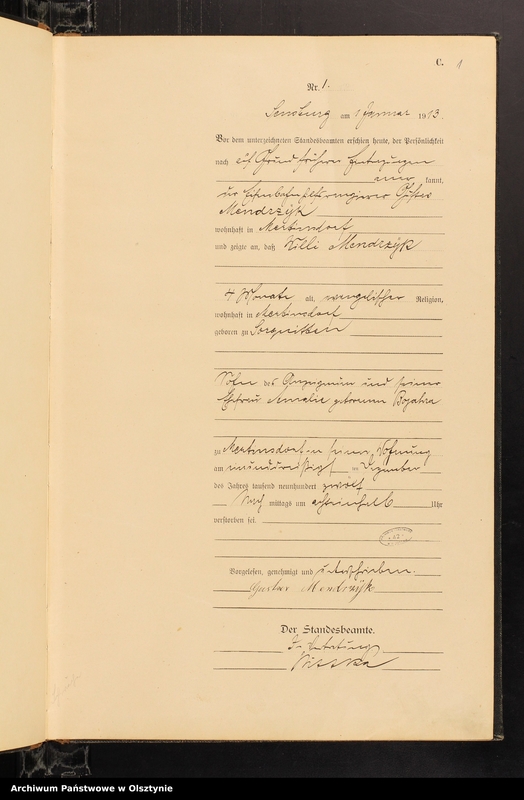 C. 1
Nr. 1.
Sensburg am 1 Januar 1913.
Vor dem unterzeichneten Standesbeamten erschien heute, der Persönlichkeit
nach auf Grund früherer
aner kannt,
Mendrzyk
wohnhaft in Mertinsdorf
und zeigte an, daß Willi Mendrzyk
4 Monate alt, evangelischer Religion,
wohnhaft in Mertinsdorf
geboren zu Sorquitten
Sohn des Anzeigenden und seiner
Ehefrau Amalie geborenen
zu Mertinsdorf in seiner Wohnung
am neunundzwanzigsten Dezember
des Jahres tausend neunhundert zwölf
Nach mittags um achteinhalb Uhr
verstorben sei.
Vorgelesen, genehmigt und unterschrieben.
Gustav Mendrzyk
Der Standesbeamte.
In Vertretung
Archiwum Państwowe w Olsztynie